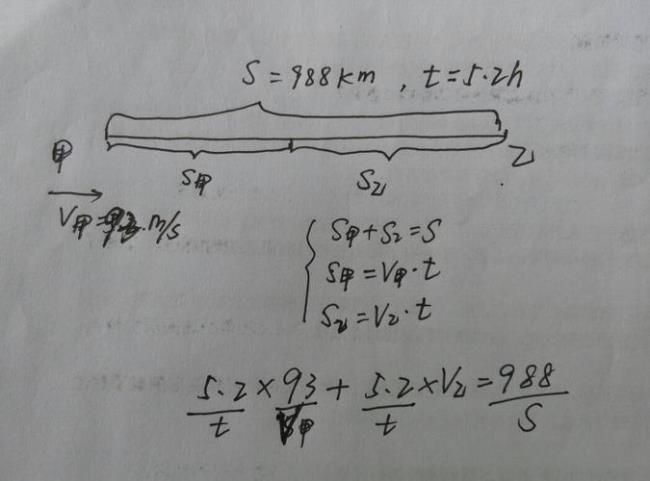 S=988km , t=5.2h
甲
S甲 S乙 乙
V甲=93.m/s
S甲+S乙=S
S甲=V甲·t
S乙=V乙·t
5.2×93+5.2×V乙=988
t V甲 t S